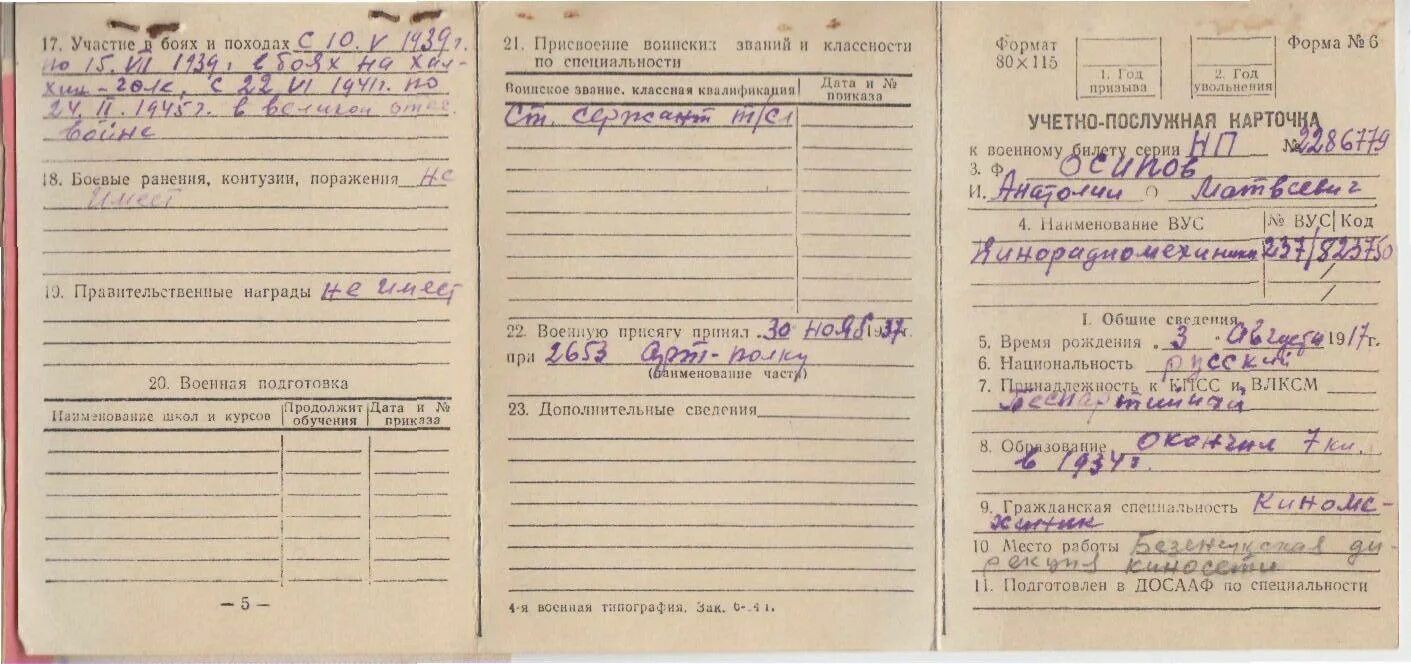 17. Участие в боях и походах С 10. V 1939 г.
по 15. VI 1939 г в боях на Хал-
хин-голе, с 22 VI 1941 г. по
24. II. 1945 г. в великой отеч.
войне
18. Боевые ранения, контузии, поражения не
имеет
19. Правительственные награды не имеет
20. Военная подготовка
Наименование школ и курсов
Продолжит обучения
Дата и № приказа
— 5 —
21. Присвоение воинских званий и классности
по специальности
Воинское звание, классная квалификация
Дата и № приказа
Ст. сержант т/сл
22. Военную присягу принял 30 нояб 1937 г.
при 2653 Арт-полку
(наименование части)
23. Дополнительные сведения
4-я военная типография. Зак.
Формат
80×115
1. Год
призыва
2. Год
увольнения
Форма № 6
УЧЕТНО-ПОСЛУЖНАЯ КАРТОЧКА
к военному билету серии НП № 2286779
3. Ф. ОСИПОВ
И. Анатолий О Матвеевич
4. Наименование ВУС
№ ВУС
Код
Кинорадиомеханики 237/823750
I. Общие сведения
5. Время рождения 3 Августа 1917 г.
6. Национальность русский
7. Принадлежность к КПСС и ВЛКСМ
беспартийный
8. Образование окончил 7 кл.
в 1934 г.
9. Гражданская специальность Киноме-
ханик
10. Место работы Безенчукская ди-
рекция киносети
11. Подготовлен в ДОСААФ по специальности